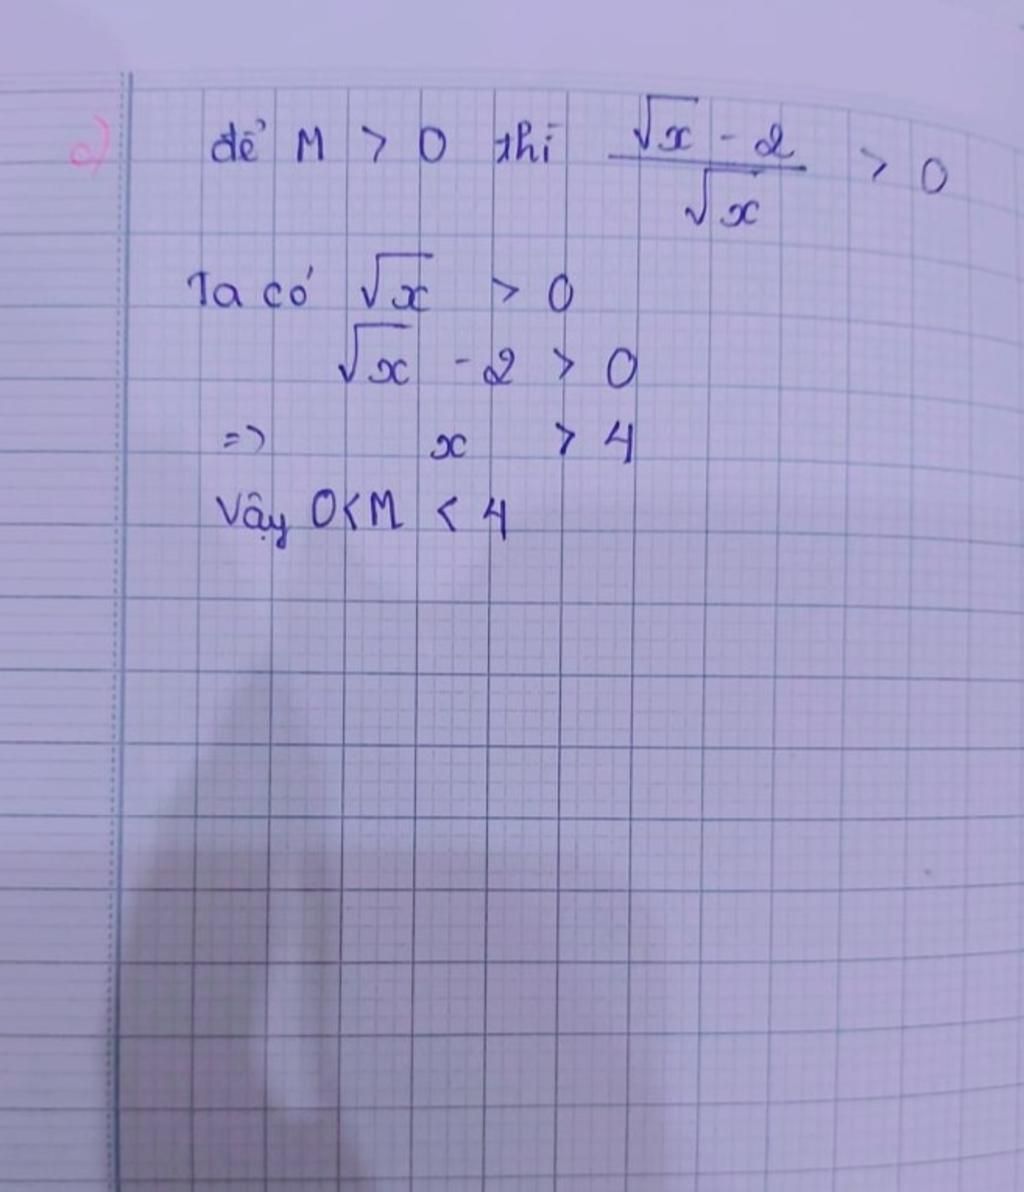 c) để M > 0 thì \frac{\sqrt{x} - 2}{\sqrt{x}} > 0
Ta có \sqrt{x} > 0
\sqrt{x} - 2 > 0
=> x > 4
Vậy 0 < M < 4